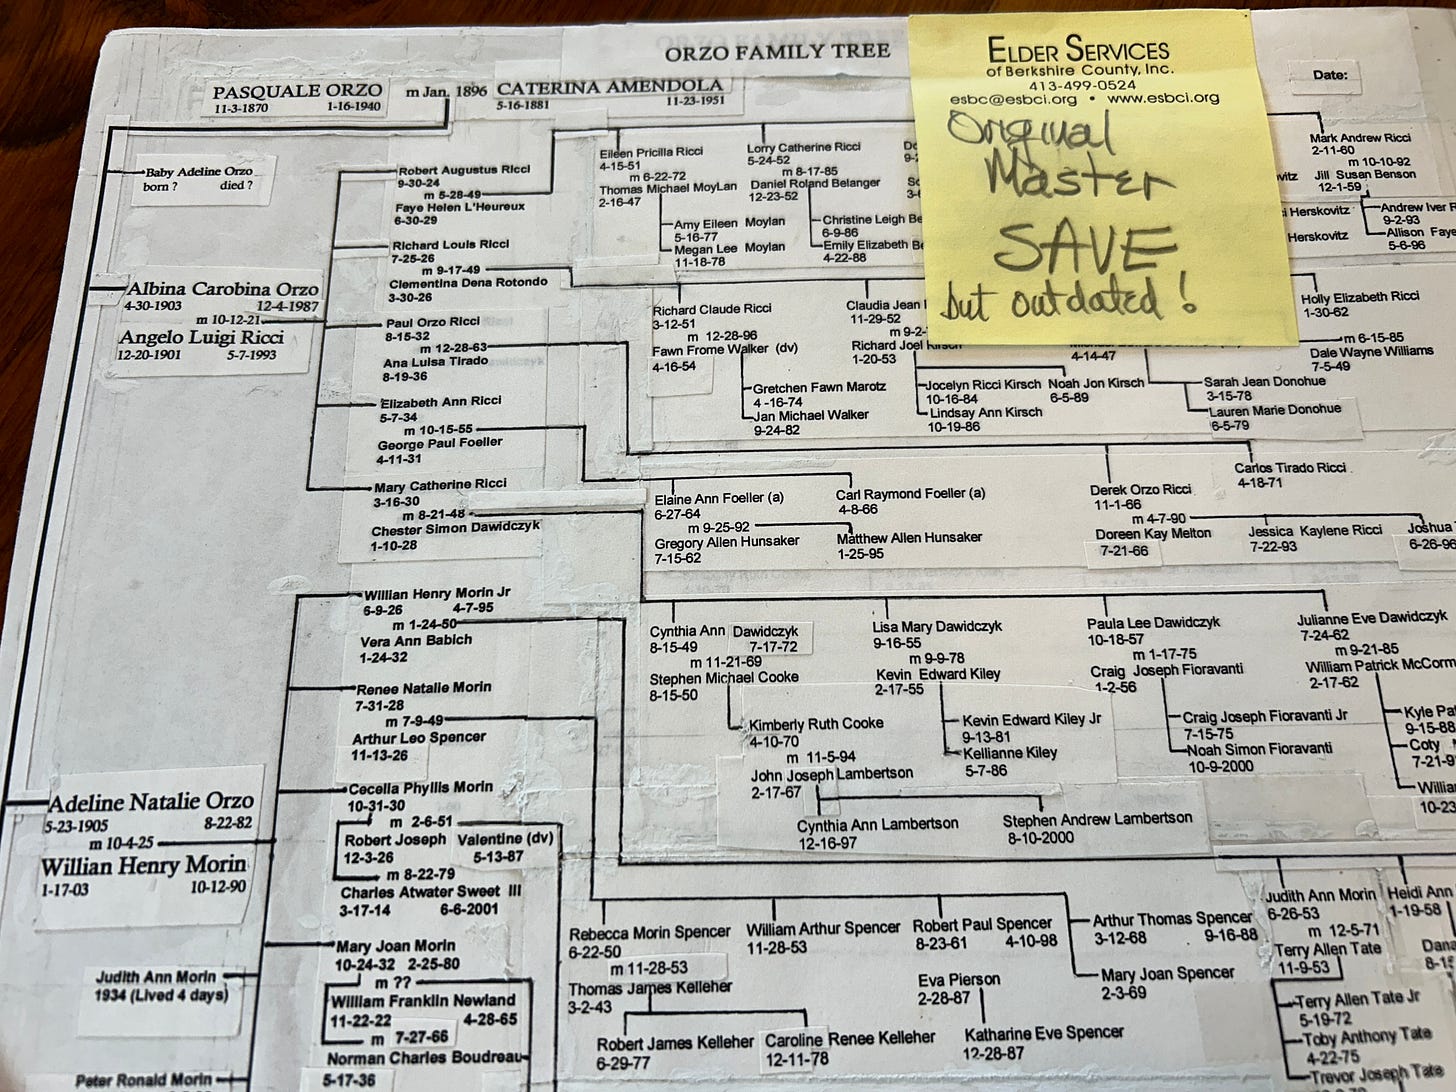 ORZO FAMILY TREE
ELDER SERVICES
of Berkshire County, Inc.
413-499-0524
esbc@esbci.org • www.esbci.org
Original
Master
SAVE
but outdated!
Date:
PASQUALE ORZO m Jan. 1896 CATERINA AMENDOLA
11-3-1870 1-16-1940 5-16-1881 11-23-1951
Baby Adeline Orzo
born ? died ?
Albina Carobina Orzo
4-30-1903 12-4-1987
m 10-12-21
Angelo Luigi Ricci
12-20-1901 5-7-1993
Adeline Natalie Orzo
5-23-1905 8-22-82
m 10-4-25
Willian Henry Morin
1-17-03 10-12-90
Judith Ann Morin
1934 (Lived 4 days)
Peter Ronald Morin
Robert Augustus Ricci
9-30-24
m 5-28-49
Faye Helen L'Heureux
6-30-29
Richard Louis Ricci
7-25-26
m 9-17-49
Clementina Dena Rotondo
3-30-26
Paul Orzo Ricci
8-15-32
m 12-28-63
Ana Luisa Tirado
8-19-36
Elizabeth Ann Ricci
5-7-34
m 10-15-55
George Paul Foeller
4-11-31
Mary Catherine Ricci
3-16-30
m 8-21-48
Chester Simon Dawidczyk
1-10-28
Willian Henry Morin Jr
6-9-26 4-7-95
m 1-24-50
Vera Ann Babich
1-24-32
Renee Natalie Morin
7-31-28
m 7-9-49
Arthur Leo Spencer
11-13-26
Cecelia Phyllis Morin
10-31-30
m 2-6-51
Robert Joseph Valentine (dv)
12-3-26 5-13-87
m 8-22-79
Charles Atwater Sweet III
3-17-14 6-6-2001
Mary Joan Morin
10-24-32 2-25-80
m ??
William Franklin Newland
11-22-22 4-28-65
m 7-27-66
Norman Charles Boudreau
5-17-36
Eileen Pricilla Ricci
4-15-51
m 6-22-72
Thomas Michael MoyLan
2-16-47
Amy Eileen Moylan
5-16-77
Megan Lee Moylan
11-18-78
Lorry Catherine Ricci
5-24-52
m 8-17-85
Daniel Roland Belanger
12-23-52
Christine Leigh Be
6-9-86
Emily Elizabeth B
4-22-88
Do
9-2
Sc
3-1
vitz
i Herskovitz
Herskovitz
Mark Andrew Ricci
2-11-60
m 10-10-92
Jill Susan Benson
12-1-59
Andrew Iver R
9-2-93
Allison Faye
5-6-96
Richard Claude Ricci
3-12-51
m 12-28-96
Fawn Frome Walker (dv)
4-16-54
Gretchen Fawn Marotz
4 -16-74
Jan Michael Walker
9-24-82
Claudia Jean
11-29-52
m 9-2-
Richard Joel Kirsch
1-20-53
Jocelyn Ricci Kirsch
10-16-84
Lindsay Ann Kirsch
10-19-86
Noah Jon Kirsch
6-5-89
4-14-47
Sarah Jean Donohue
3-15-78
Lauren Marie Donohue
6-5-79
Holly Elizabeth Ricci
1-30-62
m 6-15-85
Dale Wayne Williams
7-5-49
Elaine Ann Foeller (a)
6-27-64
m 9-25-92
Gregory Allen Hunsaker
7-15-62
Carl Raymond Foeller (a)
4-8-66
Matthew Allen Hunsaker
1-25-95
Derek Orzo Ricci
11-1-66
m 4-7-90
Doreen Kay Melton
7-21-66
Carlos Tirado Ricci
4-18-71
Jessica Kaylene Ricci
7-22-93
Joshua
6-26-96
Cynthia Ann Dawidczyk
8-15-49 7-17-72
m 11-21-69
Stephen Michael Cooke
8-15-50
Kimberly Ruth Cooke
4-10-70
m 11-5-94
John Joseph Lambertson
2-17-67
Cynthia Ann Lambertson
12-16-97
Stephen Andrew Lambertson
8-10-2000
Lisa Mary Dawidczyk
9-16-55
m 9-9-78
Kevin Edward Kiley
2-17-55
Kevin Edward Kiley Jr
9-13-81
Kellianne Kiley
5-7-86
Paula Lee Dawidczyk
10-18-57
m 1-17-75
Craig Joseph Fioravanti
1-2-56
Craig Joseph Fioravanti Jr
7-15-75
Noah Simon Fioravanti
10-9-2000
Julianne Eve Dawidczyk
7-24-62
m 9-21-85
William Patrick McCorm
2-17-62
Kyle Pat
9-15-88
Coty
7-21-9
Willia
10-23
Rebecca Morin Spencer
6-22-50
m 11-28-53
Thomas James Kelleher
3-2-43
Robert James Kelleher
6-29-77
Caroline Renee Kelleher
12-11-78
William Arthur Spencer
11-28-53
Robert Paul Spencer
8-23-61 4-10-98
Eva Pierson
2-28-87
Katharine Eve Spencer
12-28-87
Arthur Thomas Spencer
3-12-68 9-16-88
Mary Joan Spencer
2-3-69
Judith Ann Morin
6-26-53
m 12-5-71
Terry Allen Tate
11-9-53
Terry Allen Tate Jr
5-19-72
Toby Anthony Tate
4-22-75
Trevor Joseph Tate
Heidi Ann
1-19-58
Dana